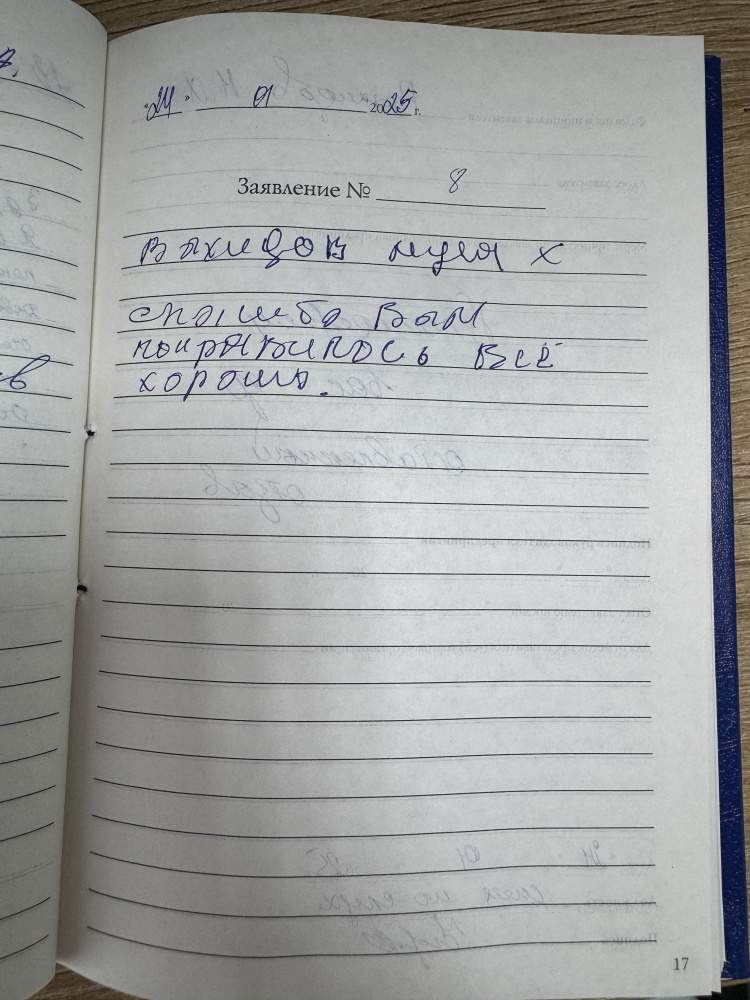 "24" 01 2025 г.
Заявление № 8
Вахидов муся х
спасибо вам
понравилось всё
хорошо.
17